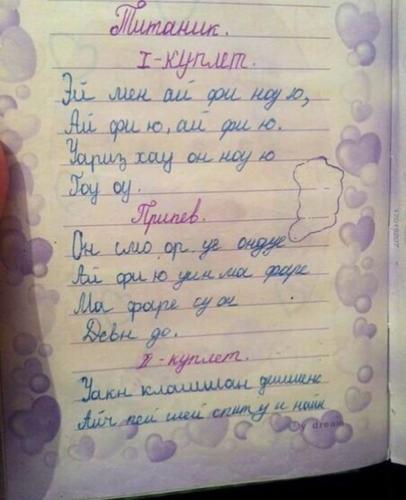 Титаник.
I-куплет.
Эй мен ай фи ноу ю,
Ай фи ю, ай фи ю.
Уариз хау он ноу ю
Гоу оу.
Припев.
Он смо ор уе
Ай фи ю уин ма фаре
Ма фаре су
Девн до.
II-куплет.
Уакн
Айч пей шей спиту и найн
my dream